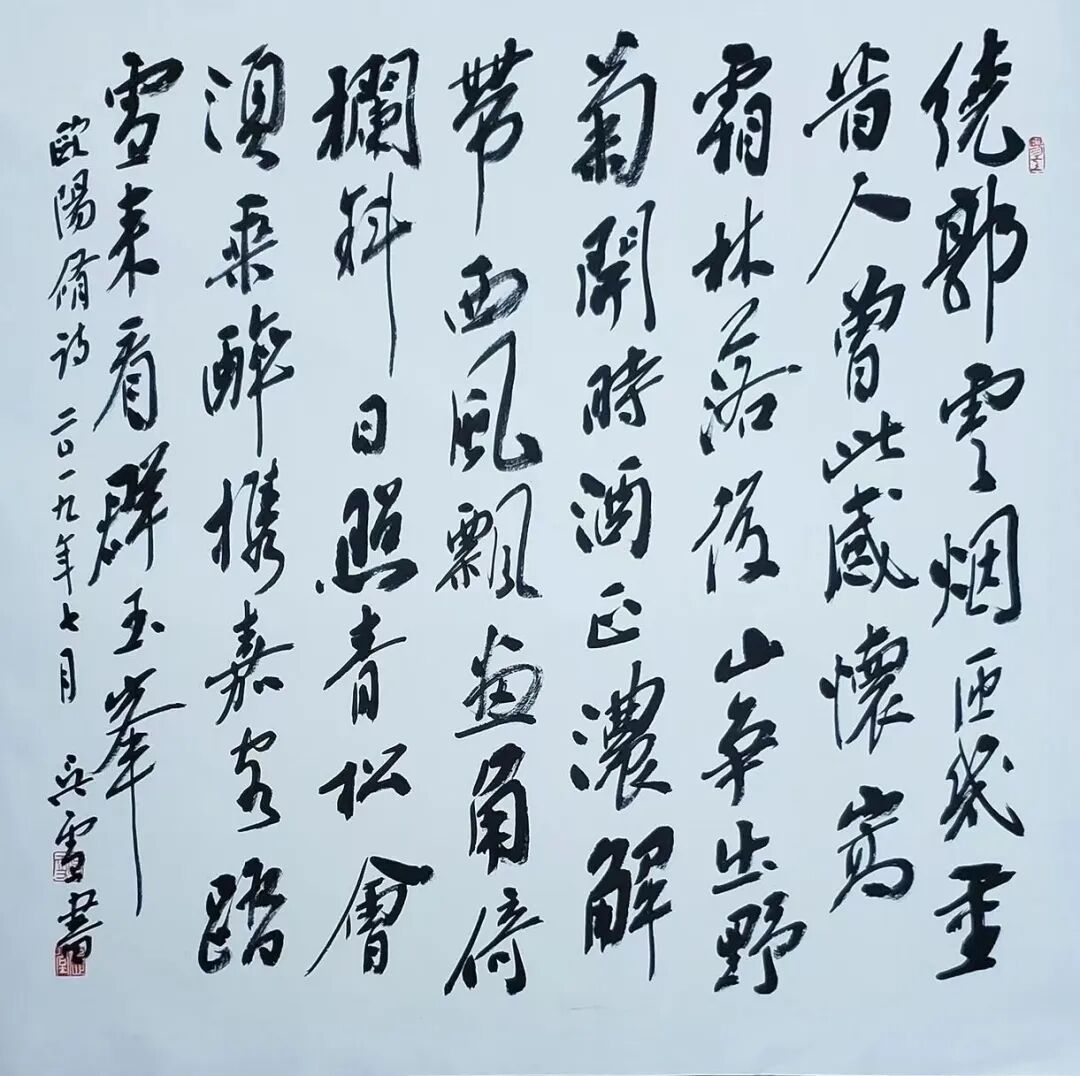 繞郭雲烟匝幾重
昔人曾此感懷嵩
霜林落後山爭出野
菊開時酒正濃解
帶西風飄畫角倚
欄斜日照青松會
須乘醉攜嘉客踏
雪來看群玉峯
歐陽脩詩二〇一九年七月吴雪書